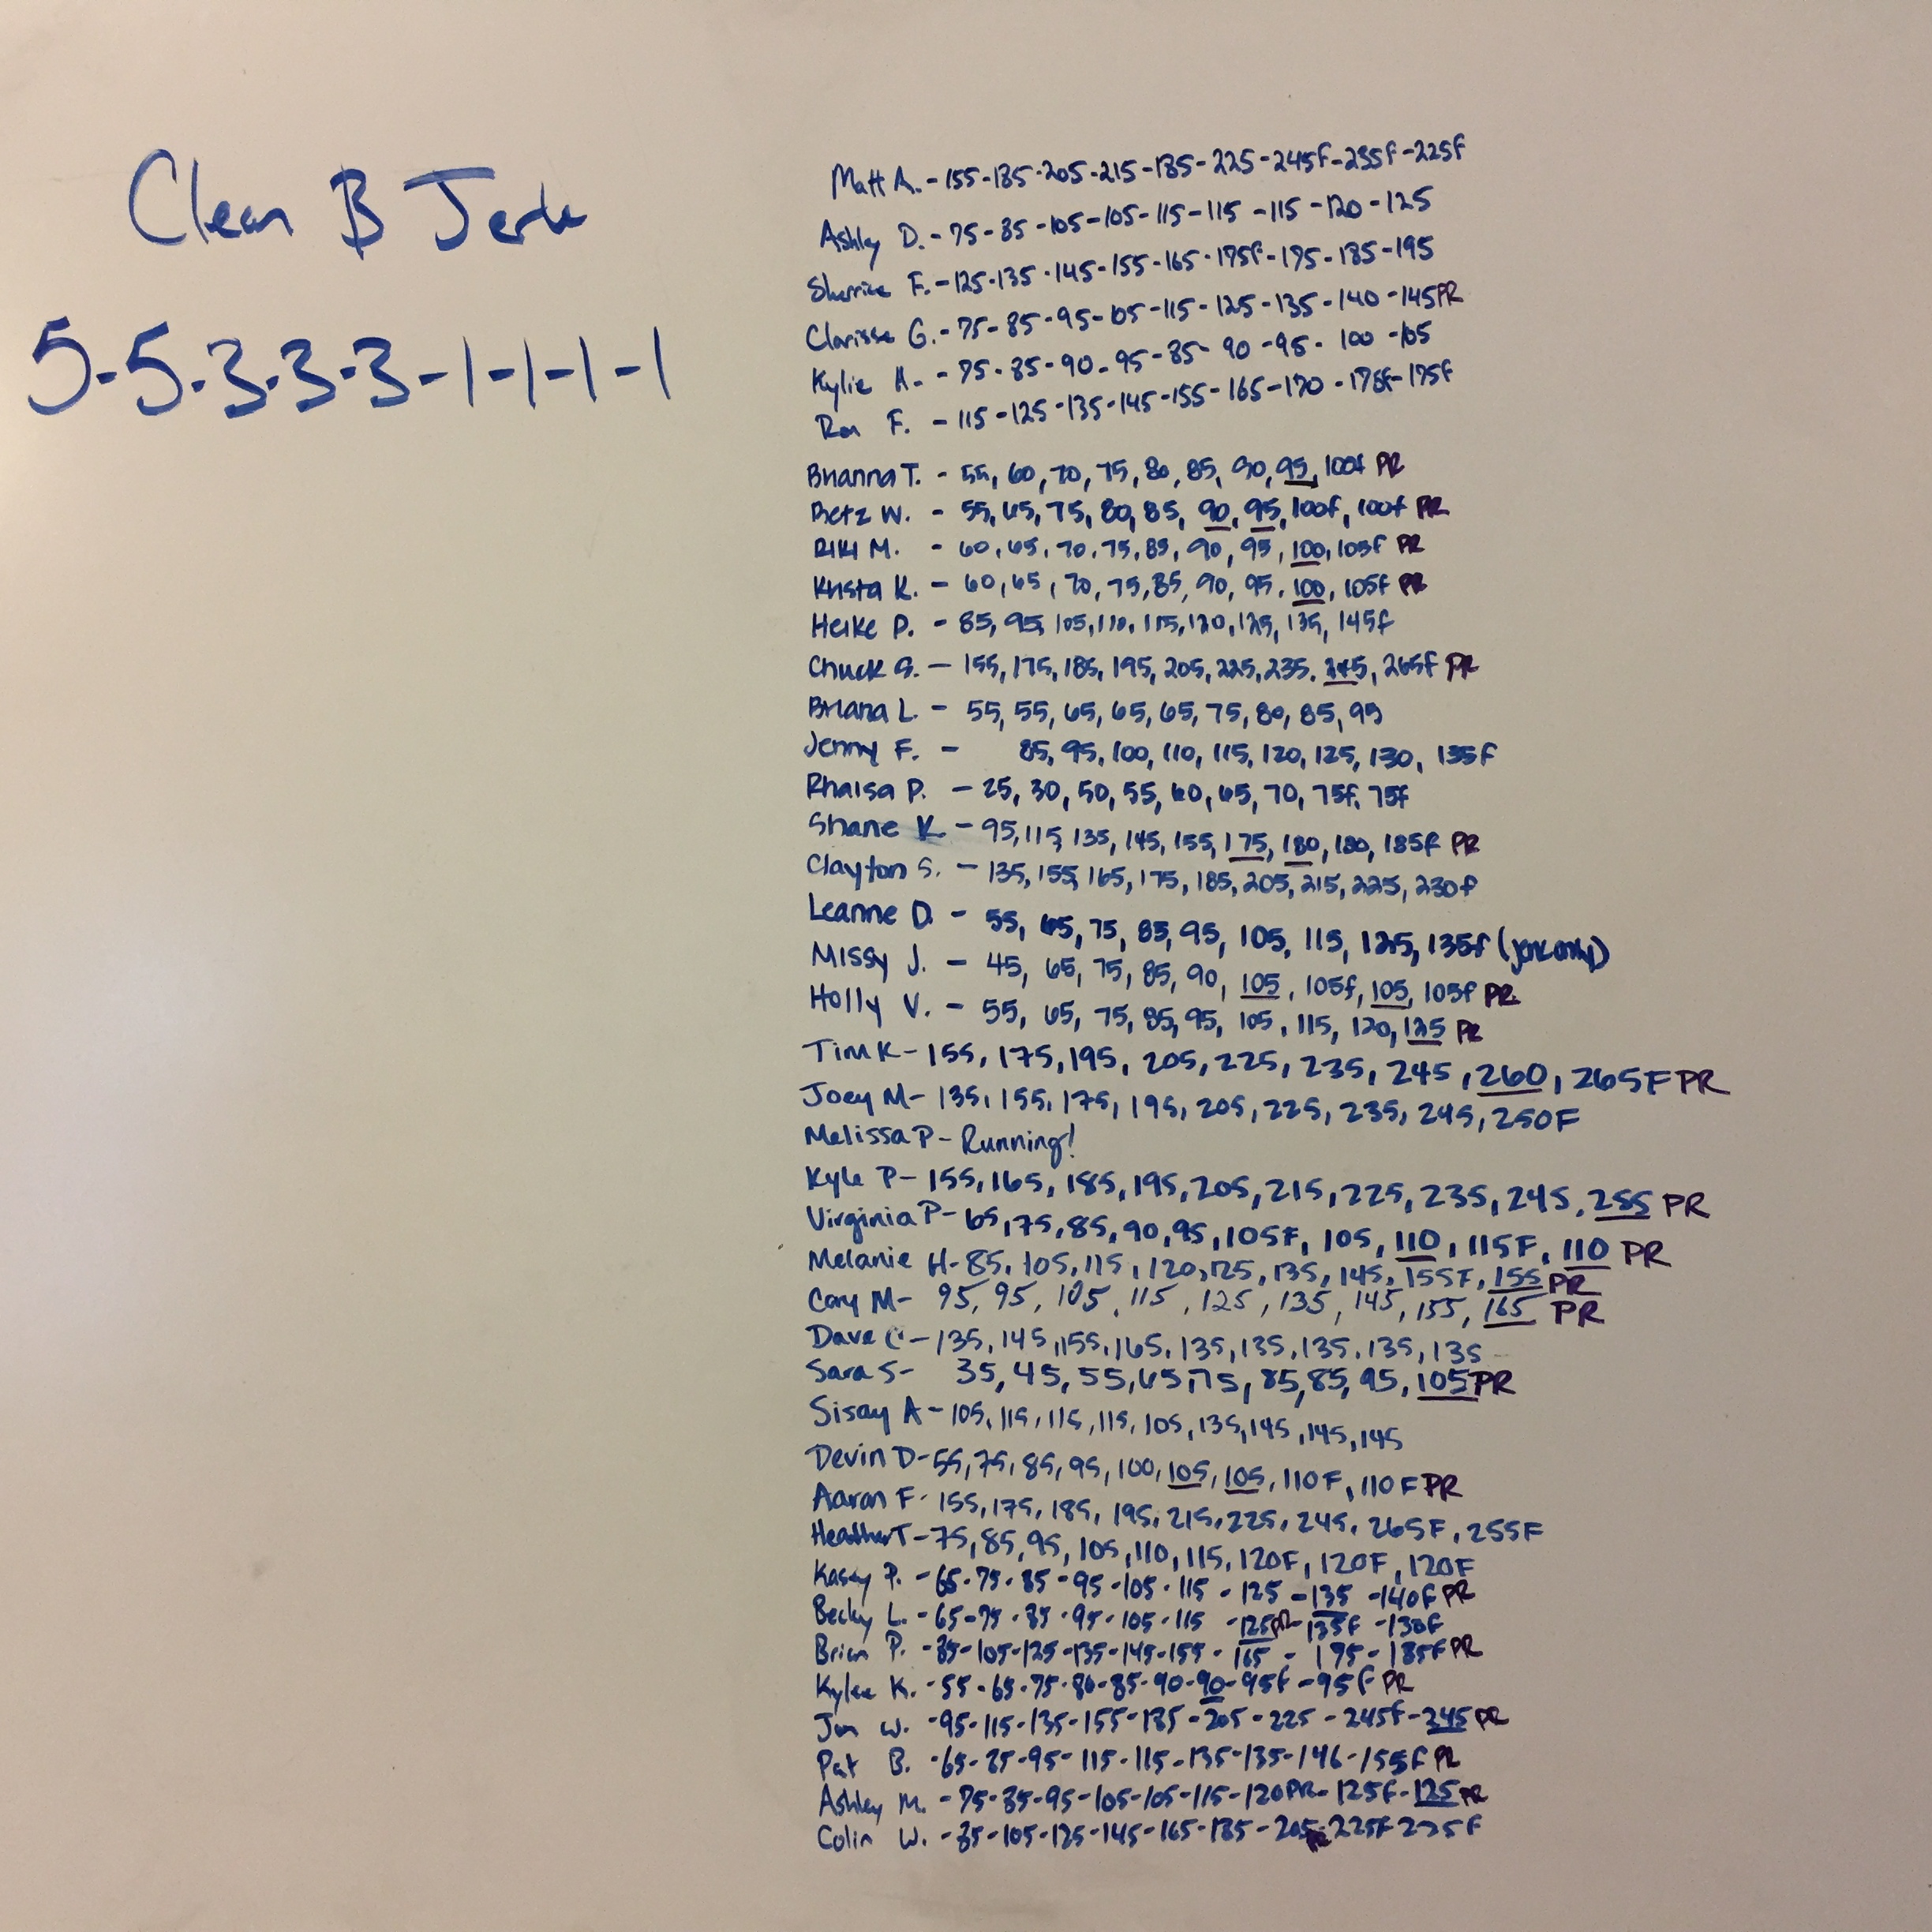 Clean & Jerk
5-5-3-3-3-1-1-1-1
Matt A. - 155-185-205-215-185-225-245f-235f-225f
Ashley D. - 75-85-105-105-115-115-115-120-125
Sherrise F. - 125-135-145-155-165-175f-175-185-195
Clarisse G. - 75-85-95-105-115-125-135-140-145PR
Kylie H. - 75-85-90-95-85-90-95-100-105
Ron F. - 115-125-135-145-155-165-170-175f-175f
Brianna T. - 55, 60, 70, 75, 80, 85, 90, 95, 100f PR
Betz W. - 55, 65, 75, 80, 85, 90, 95, 100f, 100f PR
Riki M. - 60, 65, 70, 75, 85, 90, 95, 100, 105f PR
Krista K. - 60, 65, 70, 75, 85, 90, 95, 100, 105f PR
Heike P. - 85, 95, 105, 110, 115, 120, 125, 135, 145f
Chuck S. - 155, 175, 185, 195, 205, 225, 235, 245, 265f PR
Briana L. - 55, 55, 65, 65, 65, 75, 80, 85, 95
Jenny F. - 85, 95, 100, 110, 115, 120, 125, 130, 135f
Rhaisa P. - 25, 30, 50, 55, 60, 65, 70, 75f, 75f
Shane K. - 95, 115, 135, 145, 155, 175, 180, 180, 185f PR
Clayton S. - 135, 155, 165, 175, 185, 205, 215, 225, 230f
Leanne D. - 55, 65, 75, 85, 95, 105, 115, 125, 135f (jerk only)
Missy J. - 45, 65, 75, 85, 90, 105, 105f, 105, 105f PR
Holly V. - 55, 65, 75, 85, 95, 105, 115, 120, 125 PR
Tim K - 155, 175, 195, 205, 225, 235, 245, 260, 265F PR
Joey M - 135, 155, 175, 195, 205, 225, 235, 245, 250F
Melissa P - Running!
Kyle P - 155, 165, 185, 195, 205, 215, 225, 235, 245, 255 PR
Virginia P - 65, 75, 85, 90, 95, 105F, 105, 110, 115F, 110 PR
Melanie H - 85, 105, 115, 120, 125, 135, 145, 155F, 155 PR
Cary M - 95, 95, 105, 115, 125, 135, 145, 155, 165 PR
Dave C - 135, 145, 155, 165, 135, 135, 135, 135, 135
Sara S - 35, 45, 55, 65, 75, 85, 85, 95, 105 PR
Sisay A - 105, 115, 115, 115, 105, 135, 145, 145, 145
Devin D - 55, 75, 85, 95, 100, 105, 105, 110F, 110F PR
Aaron F - 155, 175, 185, 195, 215, 225, 245, 265F, 255F
Heather T - 75, 85, 95, 105, 110, 115, 120F, 120F, 120F
Kasey P. - 65-75-85-95-105-115-125-135-140f PR
Becky L. - 65-75-85-95-105-115-125PR-135f-130f
Brian P. - 85-105-125-135-145-155-165-175-185f PR
Kylee K. - 55-65-75-80-85-90-90-95f-95f PR
Jon W. - 95-115-135-155-185-205-225-245f-245 PR
Pat B. - 65-85-95-115-115-135-135-146-155f PR
Ashley M. - 75-85-95-105-105-115-120PR-125f-125 PR
Colin W. - 85-105-125-145-165-185-205PR-225f-225f